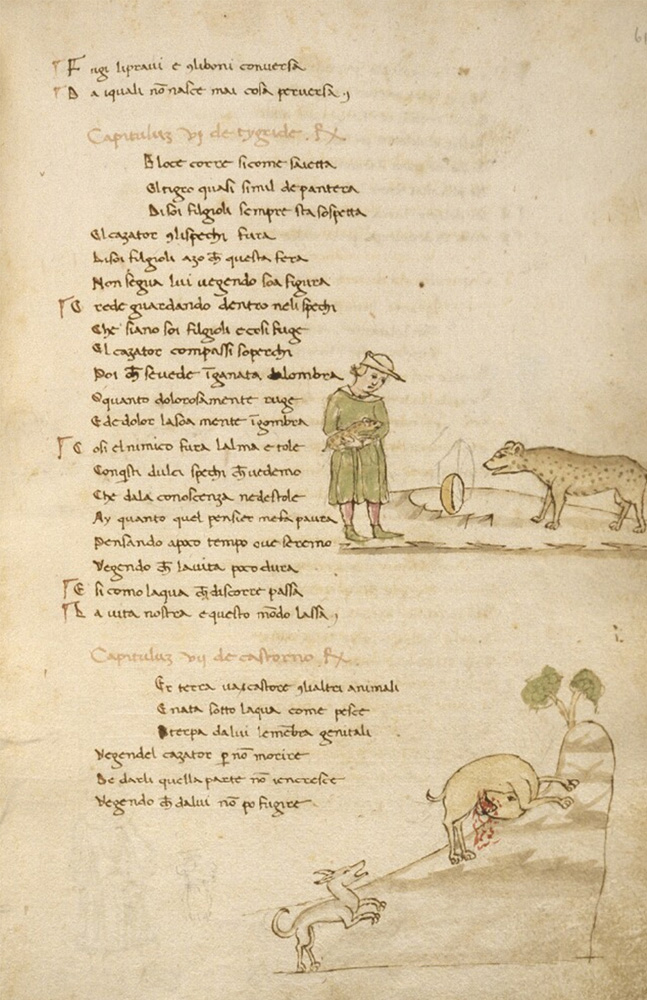 F ugi li praui e con li boni conuersa
D a i quali nō nasce mai cosa peruersa
Capituluz vj de tygride. Rx.
Eloce corre si come saietta
El tigro quasi simil de pantera
Di soi filgioli sempre sta sospetta
El cazator con li spechi fura
Li soi filgioli azo ch̄ questa fera
Non segua lui uegendo soa figura
C rede guardando dentro neli spechi
Che siano soi filgioli e cosi fuge
El cazator con passi soperchi
Poi ch̄ se uede īganata da lombra
O quanto dolorosamente ruge
E de dolor la soa mente īgombra
C osi el nimico fura lalma e tole
Con questi dulci spechi ch̄ uedemo
Che da la conoscenza ne destole
Ay quanto quel pensier me fa paura
Pensando a poco tempo oue seremo
Vegendo ch̄ la uita poco dura
E si como laqua ch̄ discorre passa
L a uita nostra e questo mōdo lassa
Capituluz vij de castorno. Rx.
Er terra ua castore con li altri animali
E nata sotto laqua come pesce
Sterpa da lui le mēbra genitali
Vegendel cazator p nō morire
De darli quella parte nō i encresce
Vegendo ch̄ da lui nō po fugire